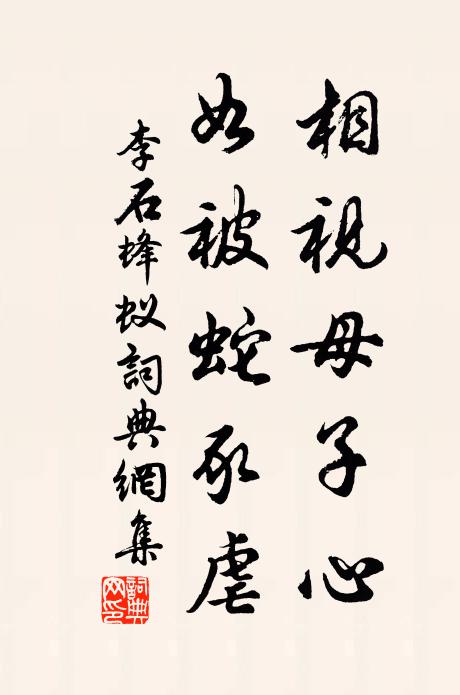 相視母子心
如被蛇豕虐
李石蜂蚁詞典網集
詞典網印